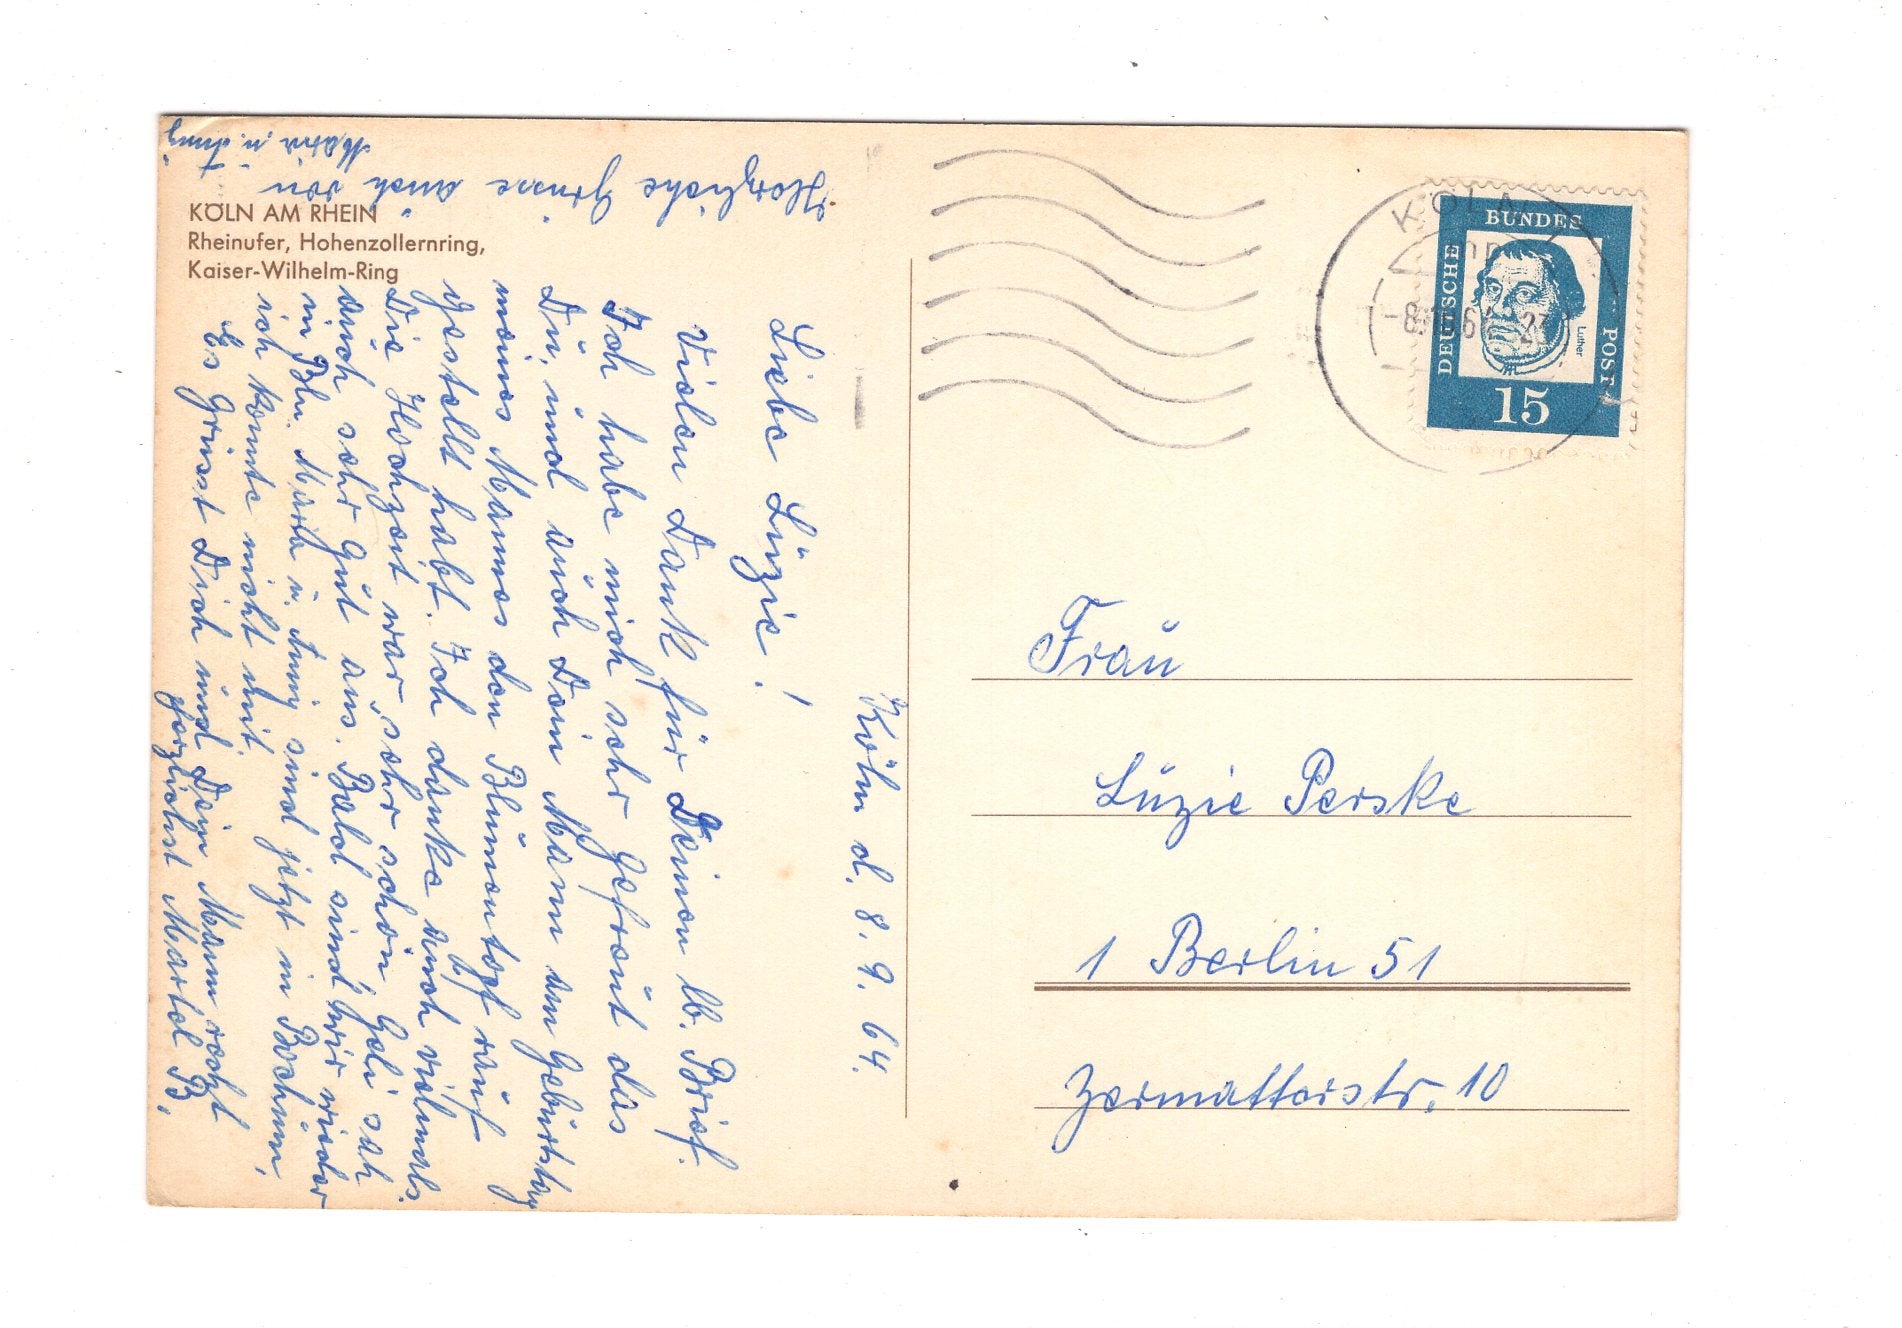 KÖLN AM RHEIN
Rheinufer, Hohenzollernring,
Kaiser-Wilhelm-Ring
Köln d. 8. 9. 64.
Liebe Luzie!
Vielen Dank für Deinen lb. Brief.
Ich habe mich sehr gefreut das
Du, und auch Dein Mann am Geburtstag
meines Mannes den Blumentopf rauf
gestellt habt. Ich danke auch vielmals.
Die Hochzeit war sehr schön Geli sah
auch sehr gut aus. Bald sind wir wieder
in Bln. Maria u. Anny sind jetzt in Bochum,
ich konnte nicht mit.
Es grüsst Dich und Dein Mann recht
herzlichst Martel B.
Herzliche Grüsse auch von
Maria u. Anny
KÖLN
DEUTSCHE
BUNDES
POST
Luther
15
Frau
Luzie Perske
1 Berlin 51
Zermatterstr. 10